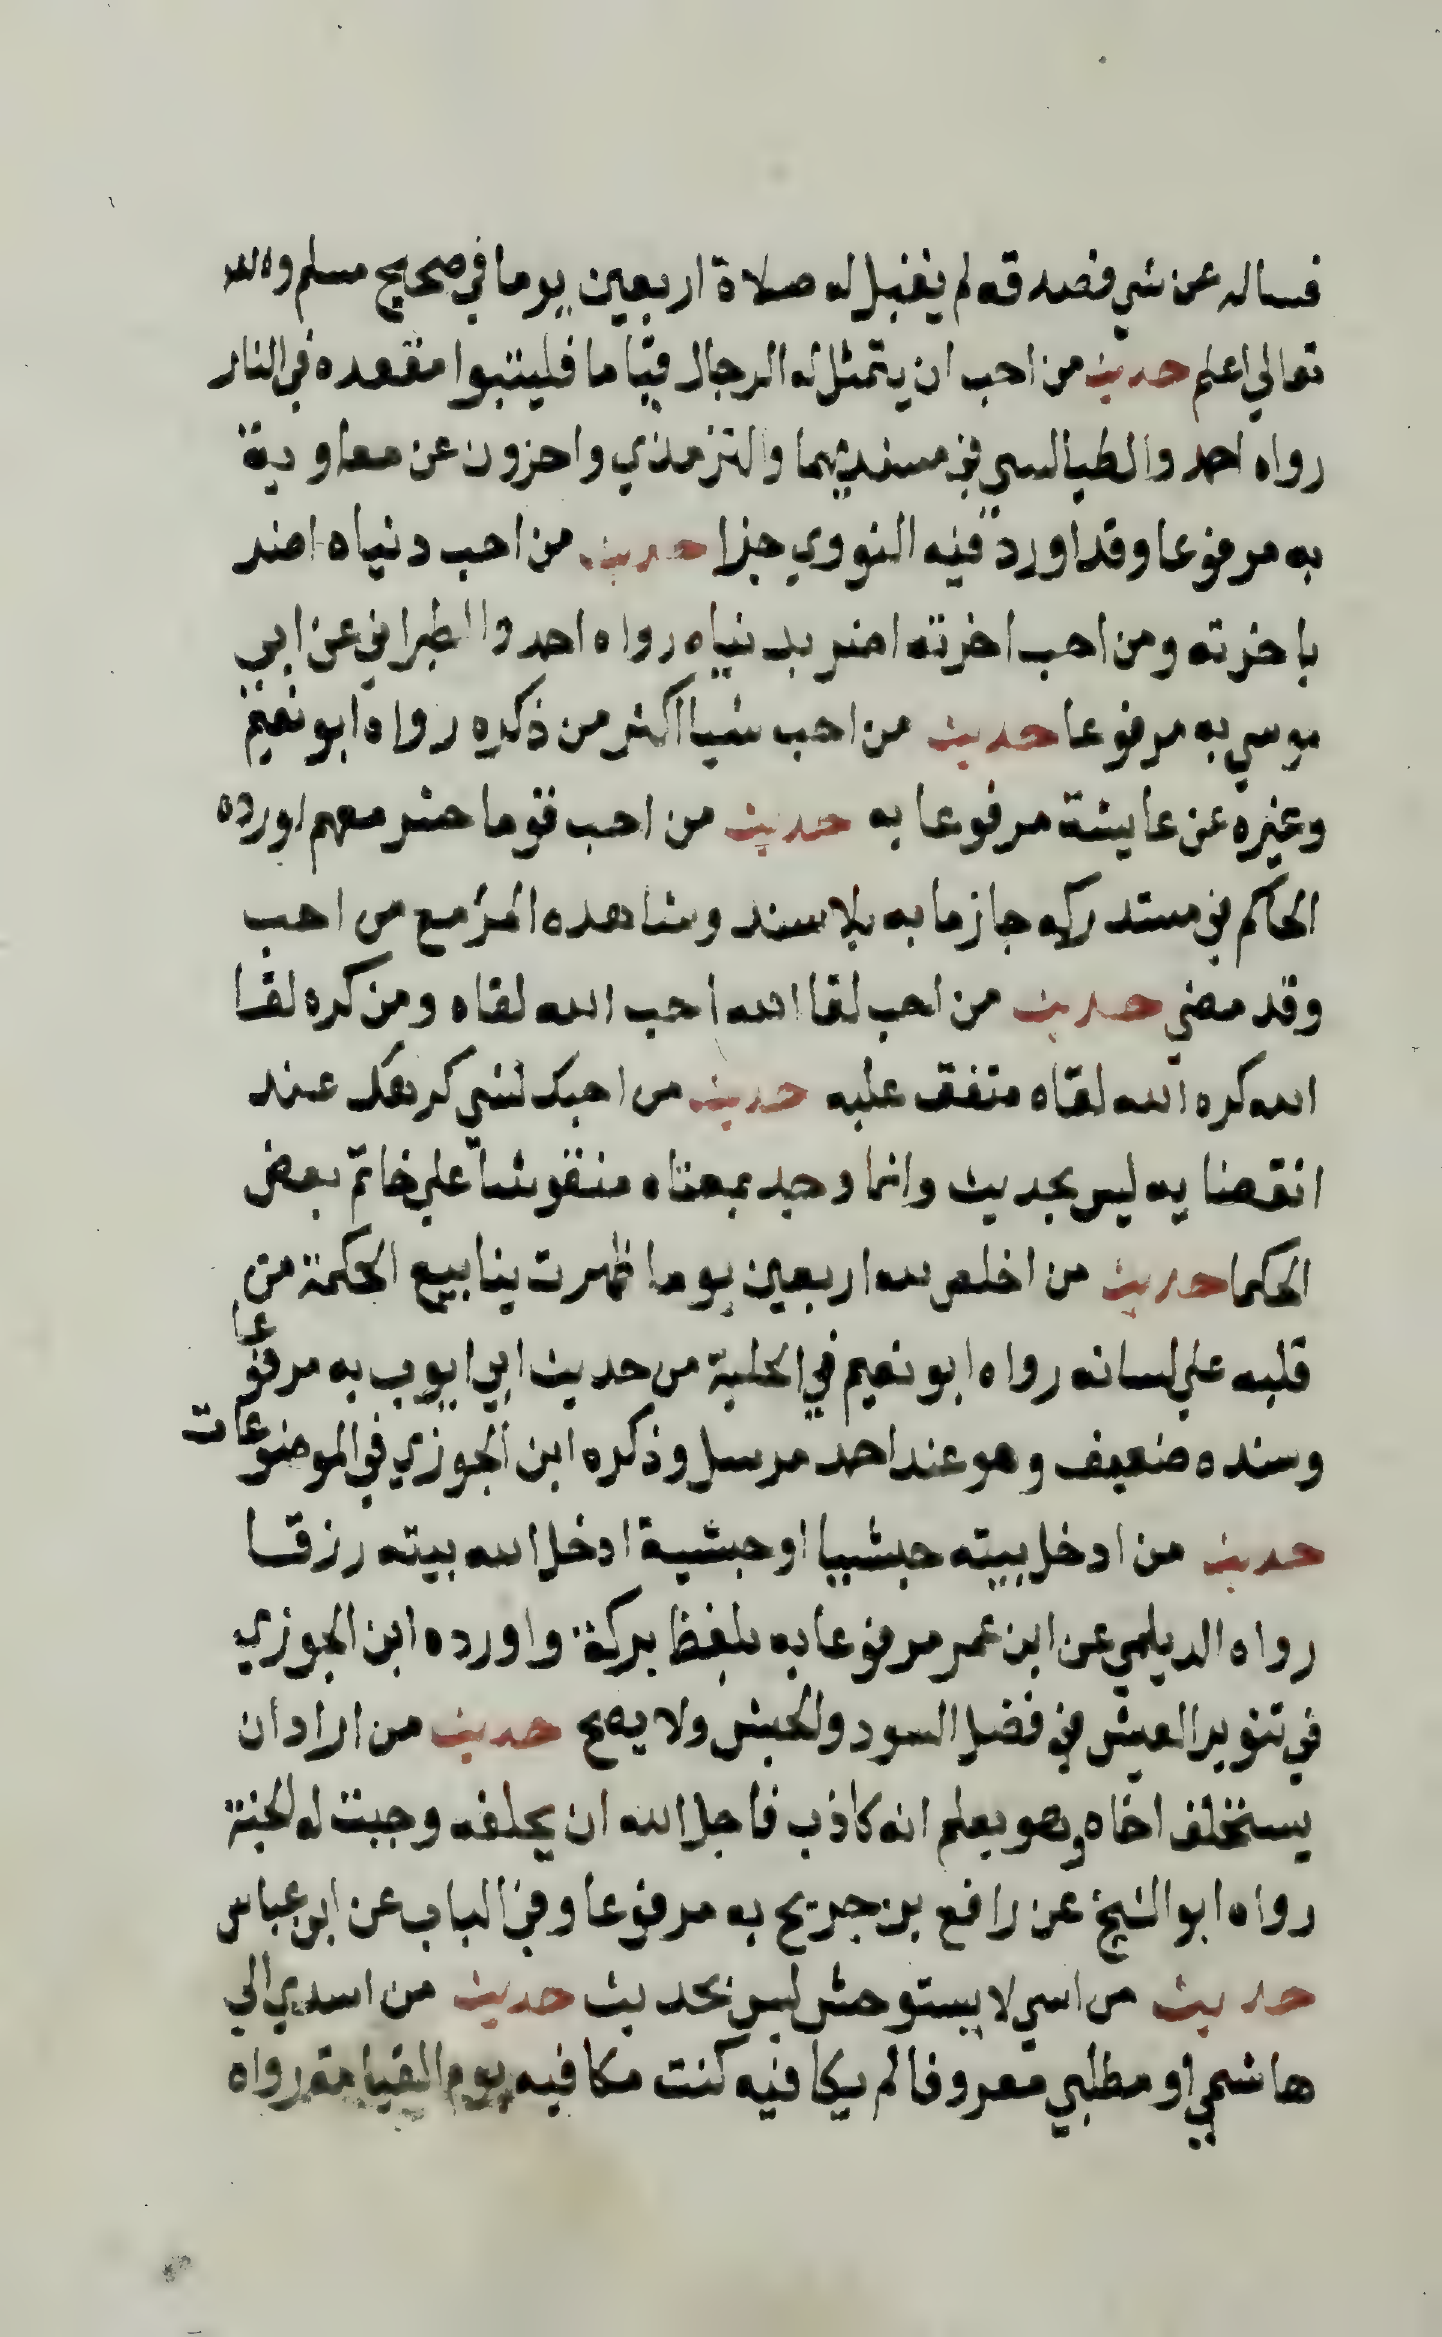 فساله عن شي فصدقه لم يقبل له صلاة اربعين يوما في صحيح مسلم والله
تعالي اعلم حديث من احب ان يتمثل له الرجال قياما فليتبوا مقعده في النار
رواه احمد والطيالسي في مسنديهما والترمذي واخرون عن معاوية
به مرفوعا وقد اورد فيه النووي جزا حديث من احب دنياه اضر
باخرته ومن احب اخرته اضر بدنياه رواه احمد والطبراني عن ابي
موسي به مرفوعا حديث من احب شيا اكثر من ذكره رواه ابو نعيم
وغيره عن عايشة مرفوعا به حديث من احب قوما حشر معهم اورده
الحاكم في مستدركه جازما به بلا سند وشاهده المرء مع من احب
وقد مضي حديث من احب لقا الله احب الله لقاه ومن كره لقا
الله كره الله لقاه متفق عليه حديث من احبك لشي كرهك عند
انقضايه ليس بحديث وانما وجد بمعناه منقوشا علي خاتم بعض
الحكما حديث من اخلص لله اربعين يوما ظهرت ينابيع الحكمة من
قلبه علي لسانه رواه ابو نعيم في الحلية من حديث ابي ايوب به مرفوعا
وسنده ضعيف وهو عند احمد مرسل وذكره ابن الجوزي في الموضوعات
حديث من ادخل بيته حبشيا او حبشية ادخل الله بيته رزقا
رواه الديلمي عن ابن عمر مرفوعا به بلفظ بركة واورده ابن الجوزي
في تنوير العبش في فضل السود والحبش ولا يصح حديث من اراد ان
يستحلف اخاه وهو يعلم انه كاذب فاجل الله ان يحلفه وجبت له الجنة
رواه ابو الشيخ عن رافع بن جريح به مرفوعا وفي الباب عن ابن عباس
حديث من اسي لا يستوحش ليس بحديث حديث من اسدي الي
هاشمي او مطلبي معروفا لم يكافيه كنت مكافيه يوم القيامة رواه